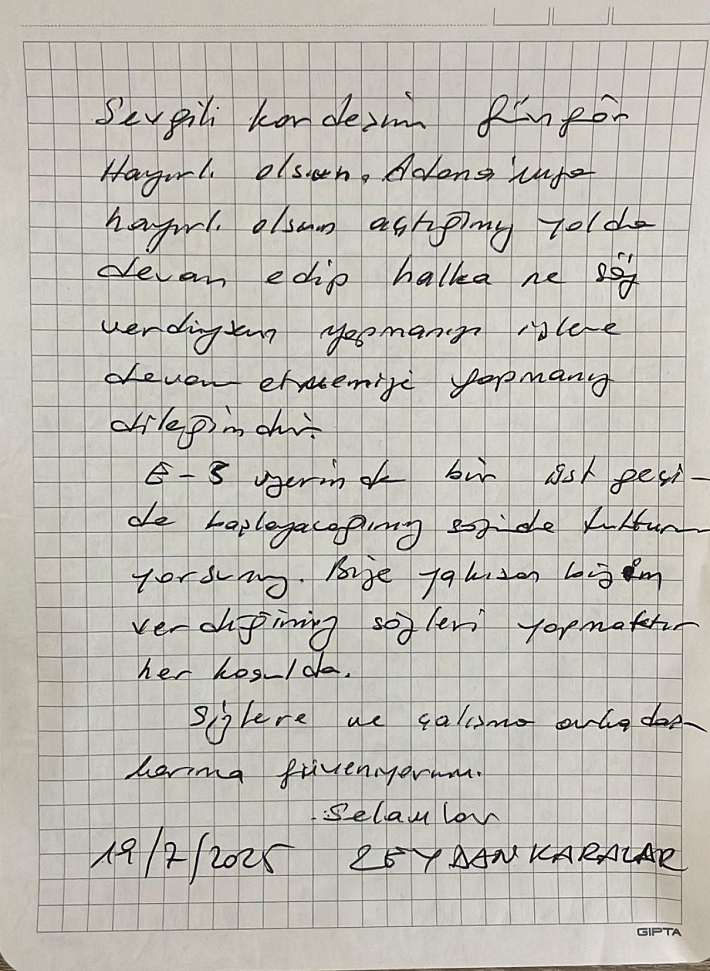 Sevgili kardeşim Güngör
Hayırlı olsun. Adana'mıza
hayırlı olsun açtığımız yolda
devam edip halka ne söz
verdiysem yapmanızı işlere
devam etmemizi yapmanız
dileğimdir.
E-5 üzerinde bir üst geçi-
de başlayacağımız sözünde tutturu
yorsunuz. Bize yakışan bizim
verdiğimiz sözleri yapmaktır
her koşulda.
Sizlere ve çalışma arkadaş-
larıma güveniyorum.
Selamlar
19/7/2025 ZEYDAN KARALAR
GIPTA